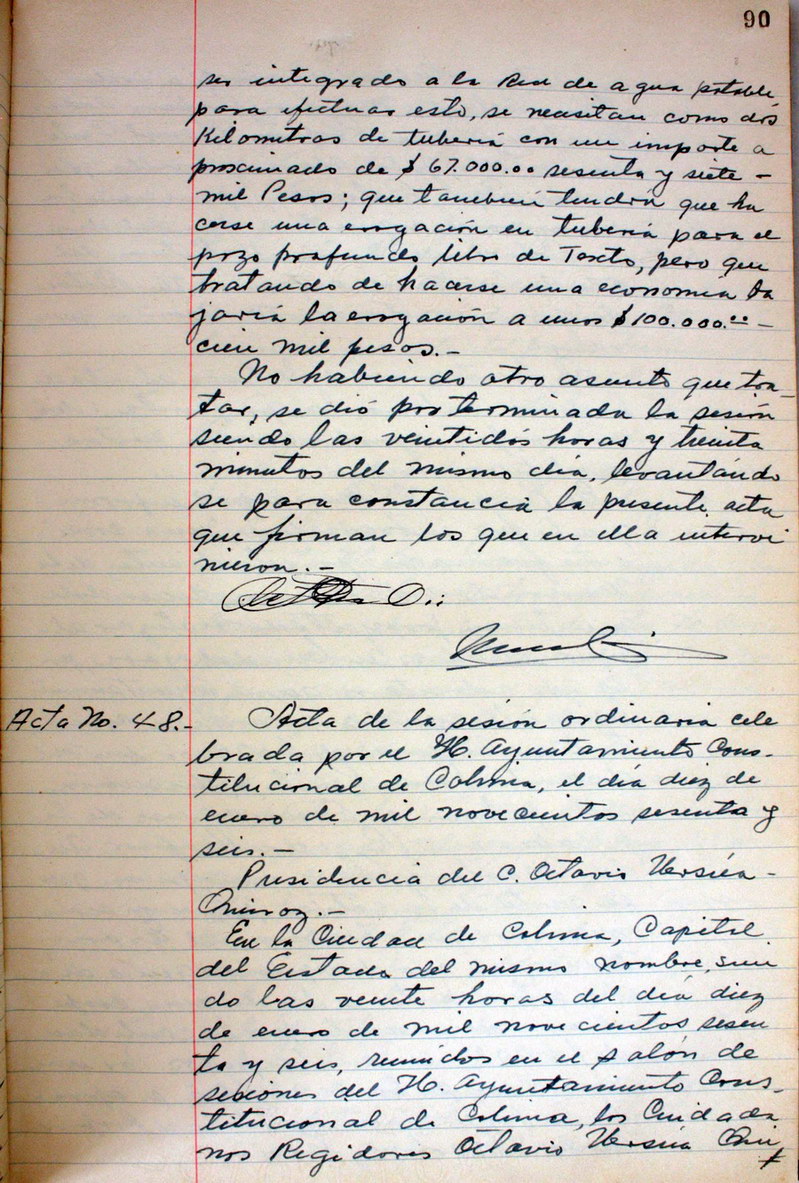 90
ser integrado a la Red de agua potable
para efectuar esto, se necesitan como dos
Kilometros de tuberia con un importe a
proximado de $ 67.000.00 sesenta y siete -
mil Pesos; que tambien tendrá que ha
cerse una erogación en tuberia para el
pozo profundo libro de Texto, pero que
tratando de hacerse una economia ba
jaria la erogación a unos $100.000.00 -
cien mil pesos.-
No habiendo otro asunto que tra_
tar, se dió por terminada la sesión
siendo las veintidós horas y treinta
minutos del mismo dia, levantando
se para constancia la presente acta
que firman los que en ella intervi
nieron.-
Acta No. 48.- Acta de la sesión ordinaria cele
brada por el H. Ayuntamiento Cons-
titucional de Colima, el dia diez de
enero de mil novecientos sesenta y
seis.-
Presidencia del C. Octavio Ursúa -
Quiroz.-
En la Ciudad de Colima, Capital
del Estado del mismo nombre, sien
do las veinte horas del dia diez
de enero de mil novecientos sesen
ta y seis, reunidos en el salón de
sesiones del H. Ayuntamiento Cons-
titucional de Colima, los Ciudada
nos Regidores Octavio Ursúa Qui